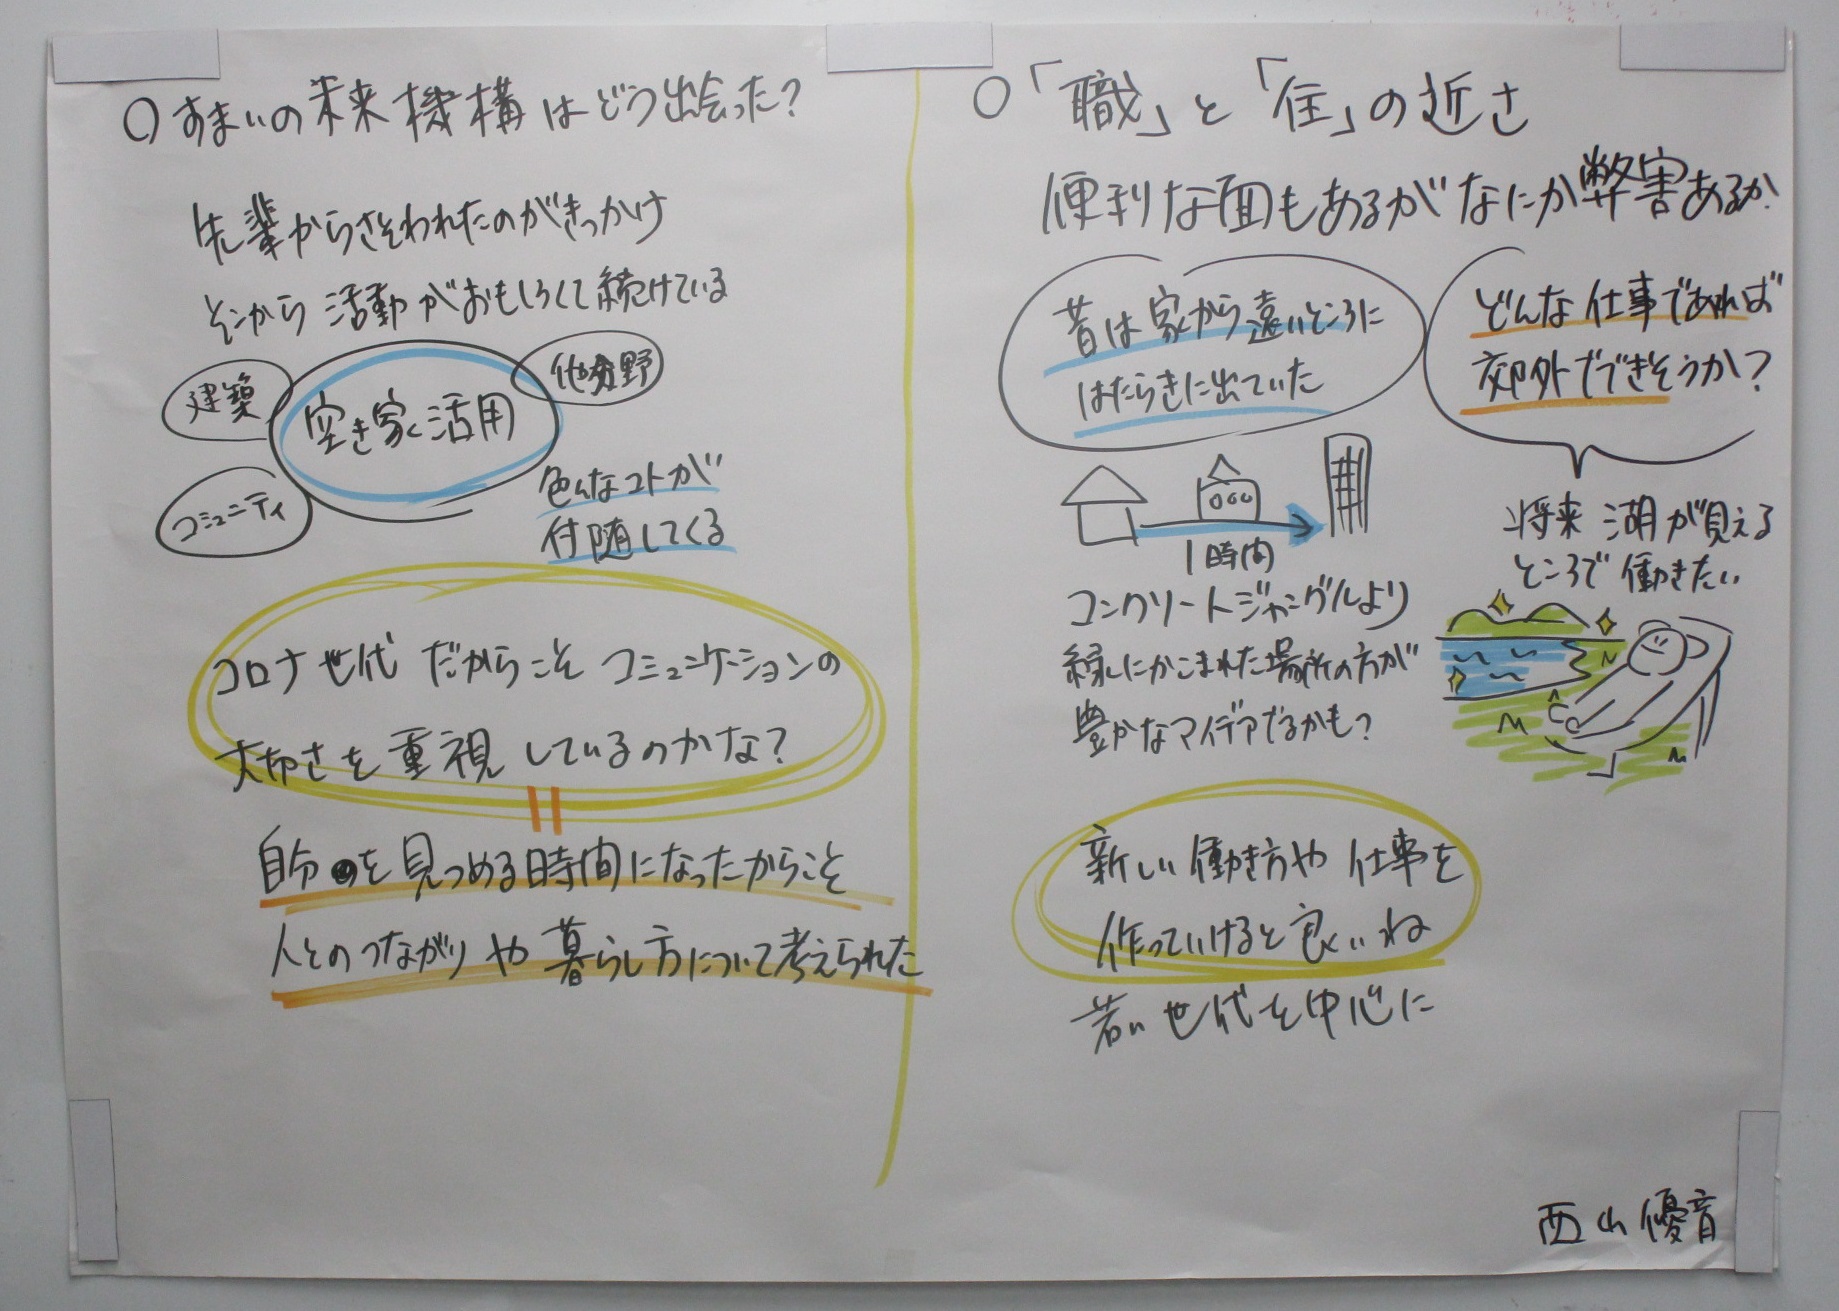 ○すまいの未来機構はどう出会った?
先輩からさそわれたのがきっかけ
そこから活動がおもしろくて続けている
建築
空き家活用
他分野
コミュニティ
色んなコトが
付随してくる
コロナ世代だからこそコミュニケーションの
大切さを重視しているのかな?
自分を見つめる時間になったからこそ
人とのつながりや暮らし方について考えられた
○「職」と「住」の近さ
便利な面もあるがなにか弊害あるか?
昔は家から遠いところに
はたらきに出ていた
1時間
コンクリートジャングルより
緑にかこまれた場所の方が
豊かなアイデアでるかも?
どんな仕事であれば
郊外でできそうか?
将来湖が見える
ところで働きたい
新しい働き方や仕事を
作っていけると良いね
若い世代を中心に
西山優音